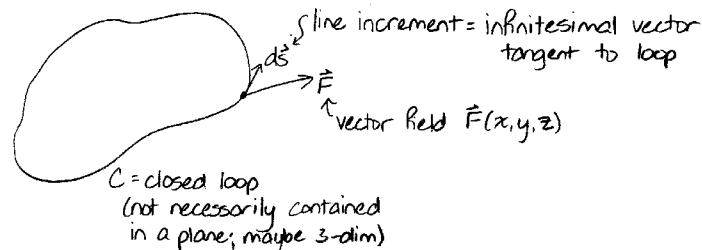 line increment = infinitesimal vector
tangent to loop
ds⃗
F⃗
vector field F⃗(x,y,z)
C = closed loop
(not necessarily contained
in a plane; maybe 3-dim)